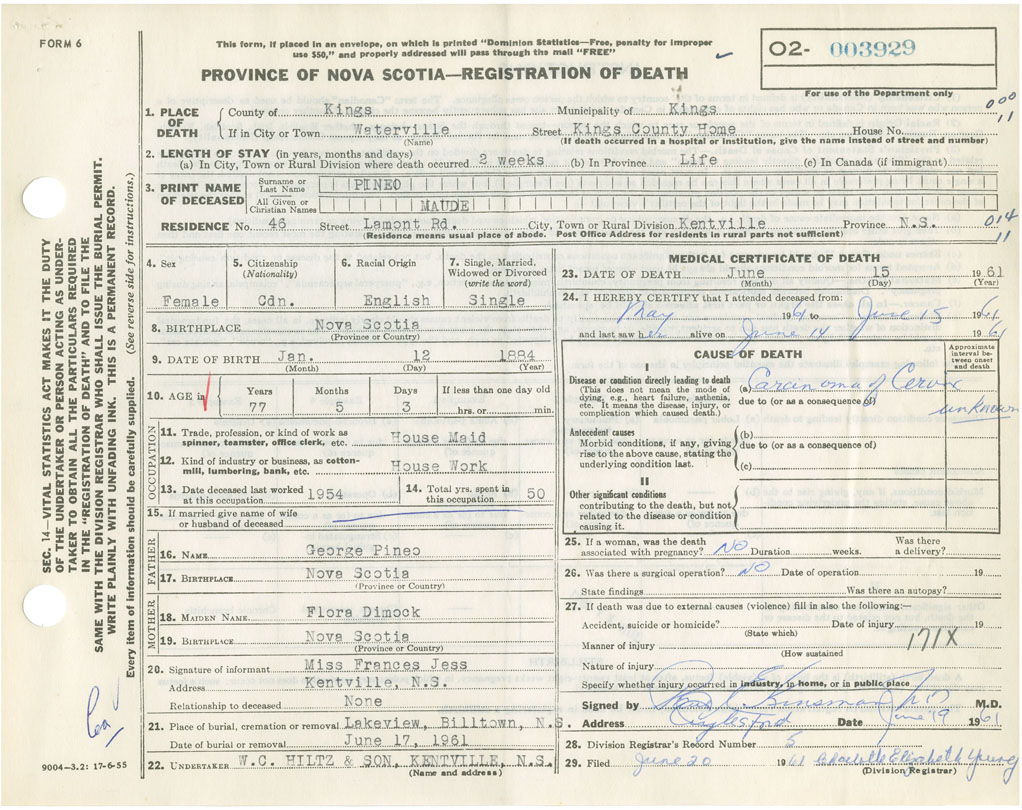 FORM 6
This form, if placed in an envelope, on which is printed "Dominion Statistics—Free, penalty for improper
use $50," and properly addressed will pass through the mail "FREE"
O2- 003929
For use of the Department only
PROVINCE OF NOVA SCOTIA—REGISTRATION OF DEATH
SEC. 14—VITAL STATISTICS ACT MAKES IT THE DUTY
OF THE UNDERTAKER OR PERSON ACTING AS UNDER-
TAKER TO OBTAIN ALL THE PARTICULARS REQUIRED
IN THE "REGISTRATION OF DEATH" AND TO FILE THE
SAME WITH THE DIVISION REGISTRAR WHO SHALL ISSUE THE BURIAL PERMIT.
WRITE PLAINLY WITH UNFADING INK. THIS IS A PERMANENT RECORD.
Every item of information should be carefully supplied. (See reverse side for instructions.)
1. PLACE OF DEATH County of Kings Municipality of Kings 000
If in City or Town Waterville Street Kings County Home House No. 11
(Name) (If death occurred in a hospital or institution, give the name instead of street and number)
2. LENGTH OF STAY (in years, months and days)
(a) In City, Town or Rural Division where death occurred 2 weeks (b) In Province Life (c) In Canada (if immigrant)
3. PRINT NAME OF DECEASED Surname or Last Name PINEO
All Given or Christian Names MAUDE
RESIDENCE No. 46 Street Lamont Rd. City, Town or Rural Division Kentville Province N.S. 014
(Residence means usual place of abode. Post Office Address for residents in rural parts not sufficient) 11
4. Sex 5. Citizenship (Nationality) 6. Racial Origin 7. Single, Married, Widowed or Divorced (write the word)
Female Cdn. English Single
8. BIRTHPLACE Nova Scotia
(Province or Country)
9. DATE OF BIRTH Jan. 12 1884
(Month) (Day) (Year)
10. AGE in Years Months Days If less than one day old
77 5 3 hrs. or min.
OCCUPATION
11. Trade, profession, or kind of work as spinner, teamster, office clerk, etc. House Maid
12. Kind of industry or business, as cotton-mill, lumbering, bank, etc. House Work
13. Date deceased last worked at this occupation 1954 14. Total yrs. spent in this occupation 50
15. If married give name of wife or husband of deceased
FATHER
16. NAME George Pineo
17. BIRTHPLACE Nova Scotia
(Province or Country)
MOTHER
18. MAIDEN NAME Flora Dimock
19. BIRTHPLACE Nova Scotia
(Province or Country)
20. Signature of informant Miss Frances Jess
Address Kentville, N.S.
Relationship to deceased None
21. Place of burial, cremation or removal Lakeview, Billtown, N.S.
Date of burial or removal June 17, 1961
22. UNDERTAKER W.C. HILTZ & SON, KENTVILLE, N.S.
(Name and address)
9004-3.2: 17-6-55
MEDICAL CERTIFICATE OF DEATH
23. DATE OF DEATH June 15 1961
(Month) (Day) (Year)
24. I HEREBY CERTIFY that I attended deceased from:
May 1961 to June 15 1961
and last saw her alive on June 14 1961
CAUSE OF DEATH
Approximate interval between onset and death
I
Disease or condition directly leading to death
(This does not mean the mode of dying, e.g., heart failure, asthenia, etc. It means the disease, injury, or complication which caused death.)
(a) Carcinoma of Cervix
due to (or as a consequence of) unknown
Antecedent causes
Morbid conditions, if any, giving rise to the above cause, stating the underlying condition last.
(b)
due to (or as a consequence of)
(c)
II
Other significant conditions
contributing to the death, but not related to the disease or condition causing it.
25. If a woman, was the death associated with pregnancy? NO Duration weeks. Was there a delivery?
26. Was there a surgical operation? NO Date of operation 19
State findings Was there an autopsy?
27. If death was due to external causes (violence) fill in also the following:—
Accident, suicide or homicide? Date of injury 19
(State which)
Manner of injury 171X
(How sustained
Nature of injury
Specify whether injury occurred in industry, in home, or in public place
Signed by Kinsman M.D.
Address Date June 19 1961
28. Division Registrar's Record Number 5
29. Filed June 20 1961 Elizabeth Young
(Division Registrar)